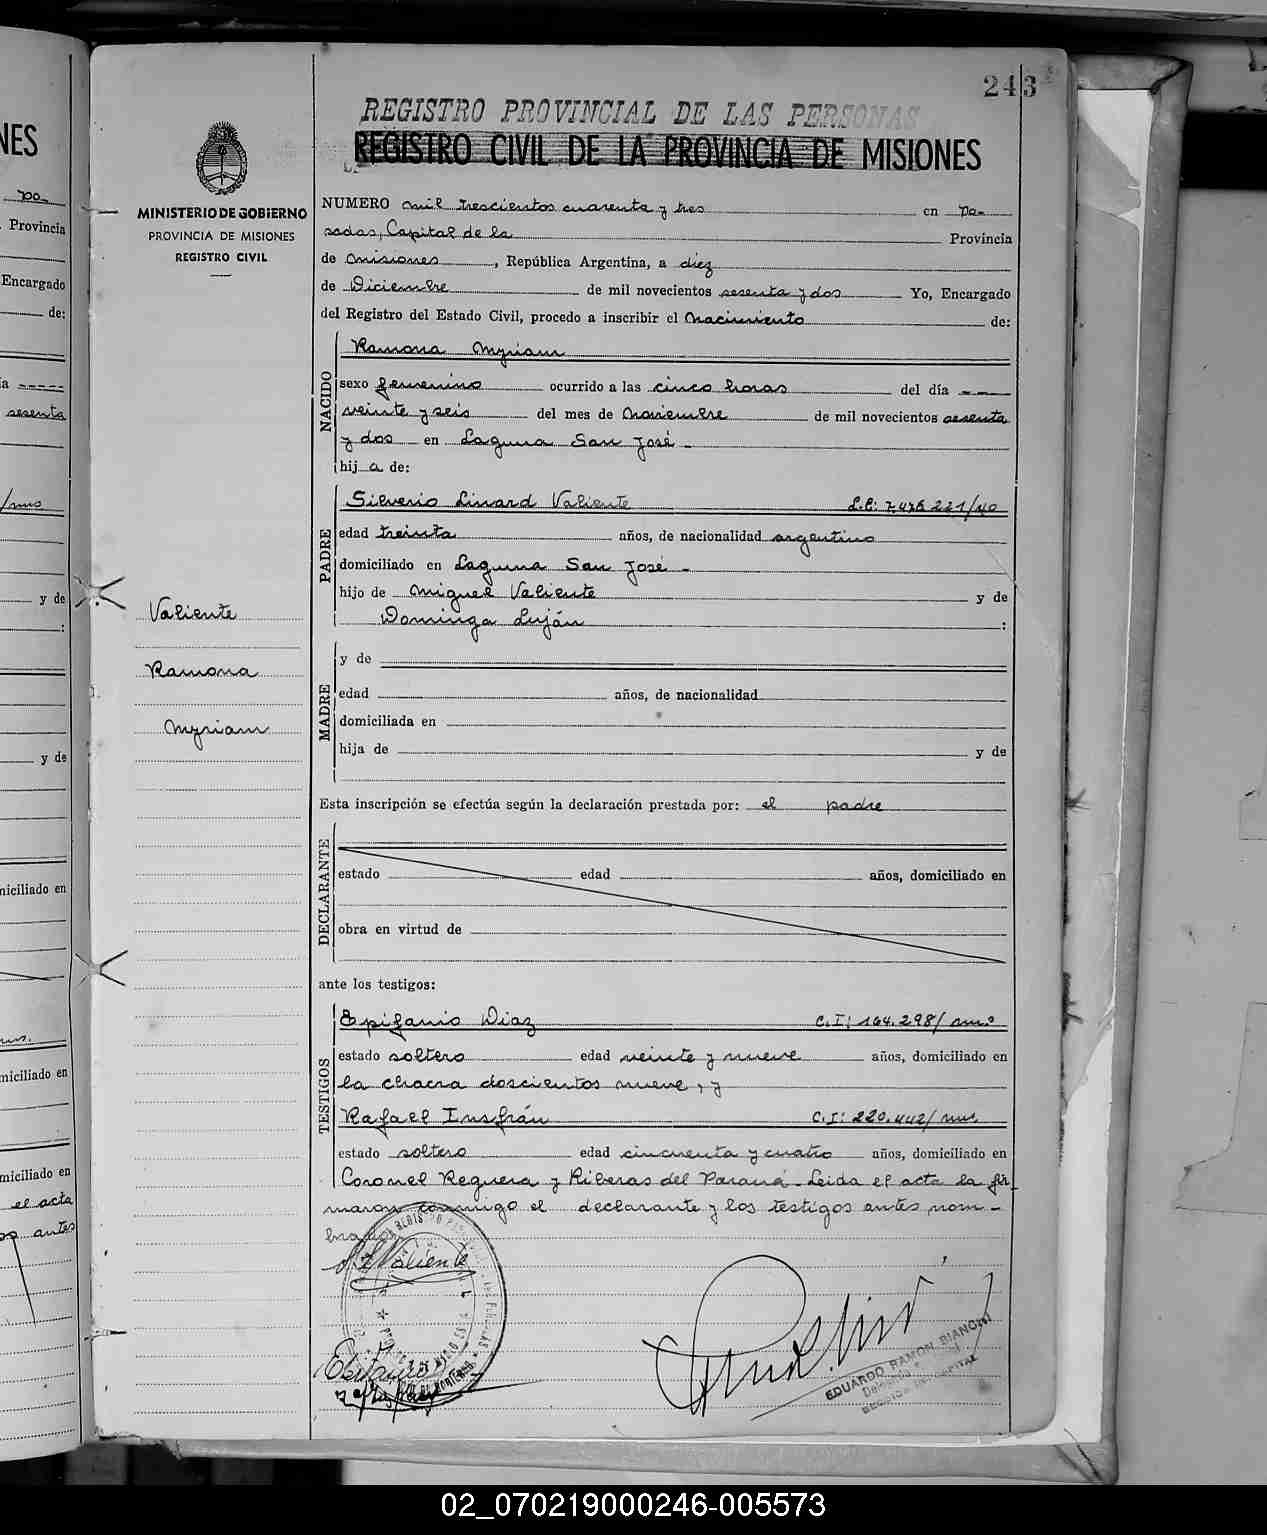 243
REGISTRO PROVINCIAL DE LAS PERSONAS
REGISTRO CIVIL DE LA PROVINCIA DE MISIONES
MINISTERIO DE GOBIERNO
PROVINCIA DE MISIONES
REGISTRO CIVIL
NUMERO mil trescientos cuarenta y tres en Po-
sadas, Capital de la Provincia
de Misiones, República Argentina, a diez
de Diciembre de mil novecientos sesenta y dos Yo, Encargado
del Registro del Estado Civil, procedo a inscribir el Nacimiento de:
NACIDO
Ramona Myriam
sexo femenino ocurrido a las cinco horas del día ---
veinte y seis del mes de Noviembre de mil novecientos sesenta
y dos en Laguna San José -
hija de:
PADRE
Silverio Linard Valiente L.E: 7.476.221/40
edad treinta años, de nacionalidad argentino
domiciliado en Laguna San José -
hijo de Miguel Valiente y de
Dominga Luján :
Valiente
Ramona
Myriam
MADRE
y de
edad años, de nacionalidad
domiciliada en
hija de y de
Esta inscripción se efectúa según la declaración prestada por: el padre
DECLARANTE
estado edad años, domiciliado en
obra en virtud de
ante los testigos:
TESTIGOS
Epifanio Diaz C.I: 164.298/mns.
estado soltero edad veinte y nueve años, domiciliado en
la chacra doscientos nueve, y
Rafael Insfrán C.I: 220.442/mns.
estado soltero edad cincuenta y cuatro años, domiciliado en
Coronel Reguera y Riberas del Paraná. Leida el acta la fir-
maron conmigo el declarante y los testigos antes nom-
brados
Valiente
EDUARDO RAMON BIANCHI
NES
Po-
Provincia
Encargado
de:
sesenta
y de
:
y de
miciliado en
miciliado en
miciliado en
el acta
antes
02_070219000246-005573